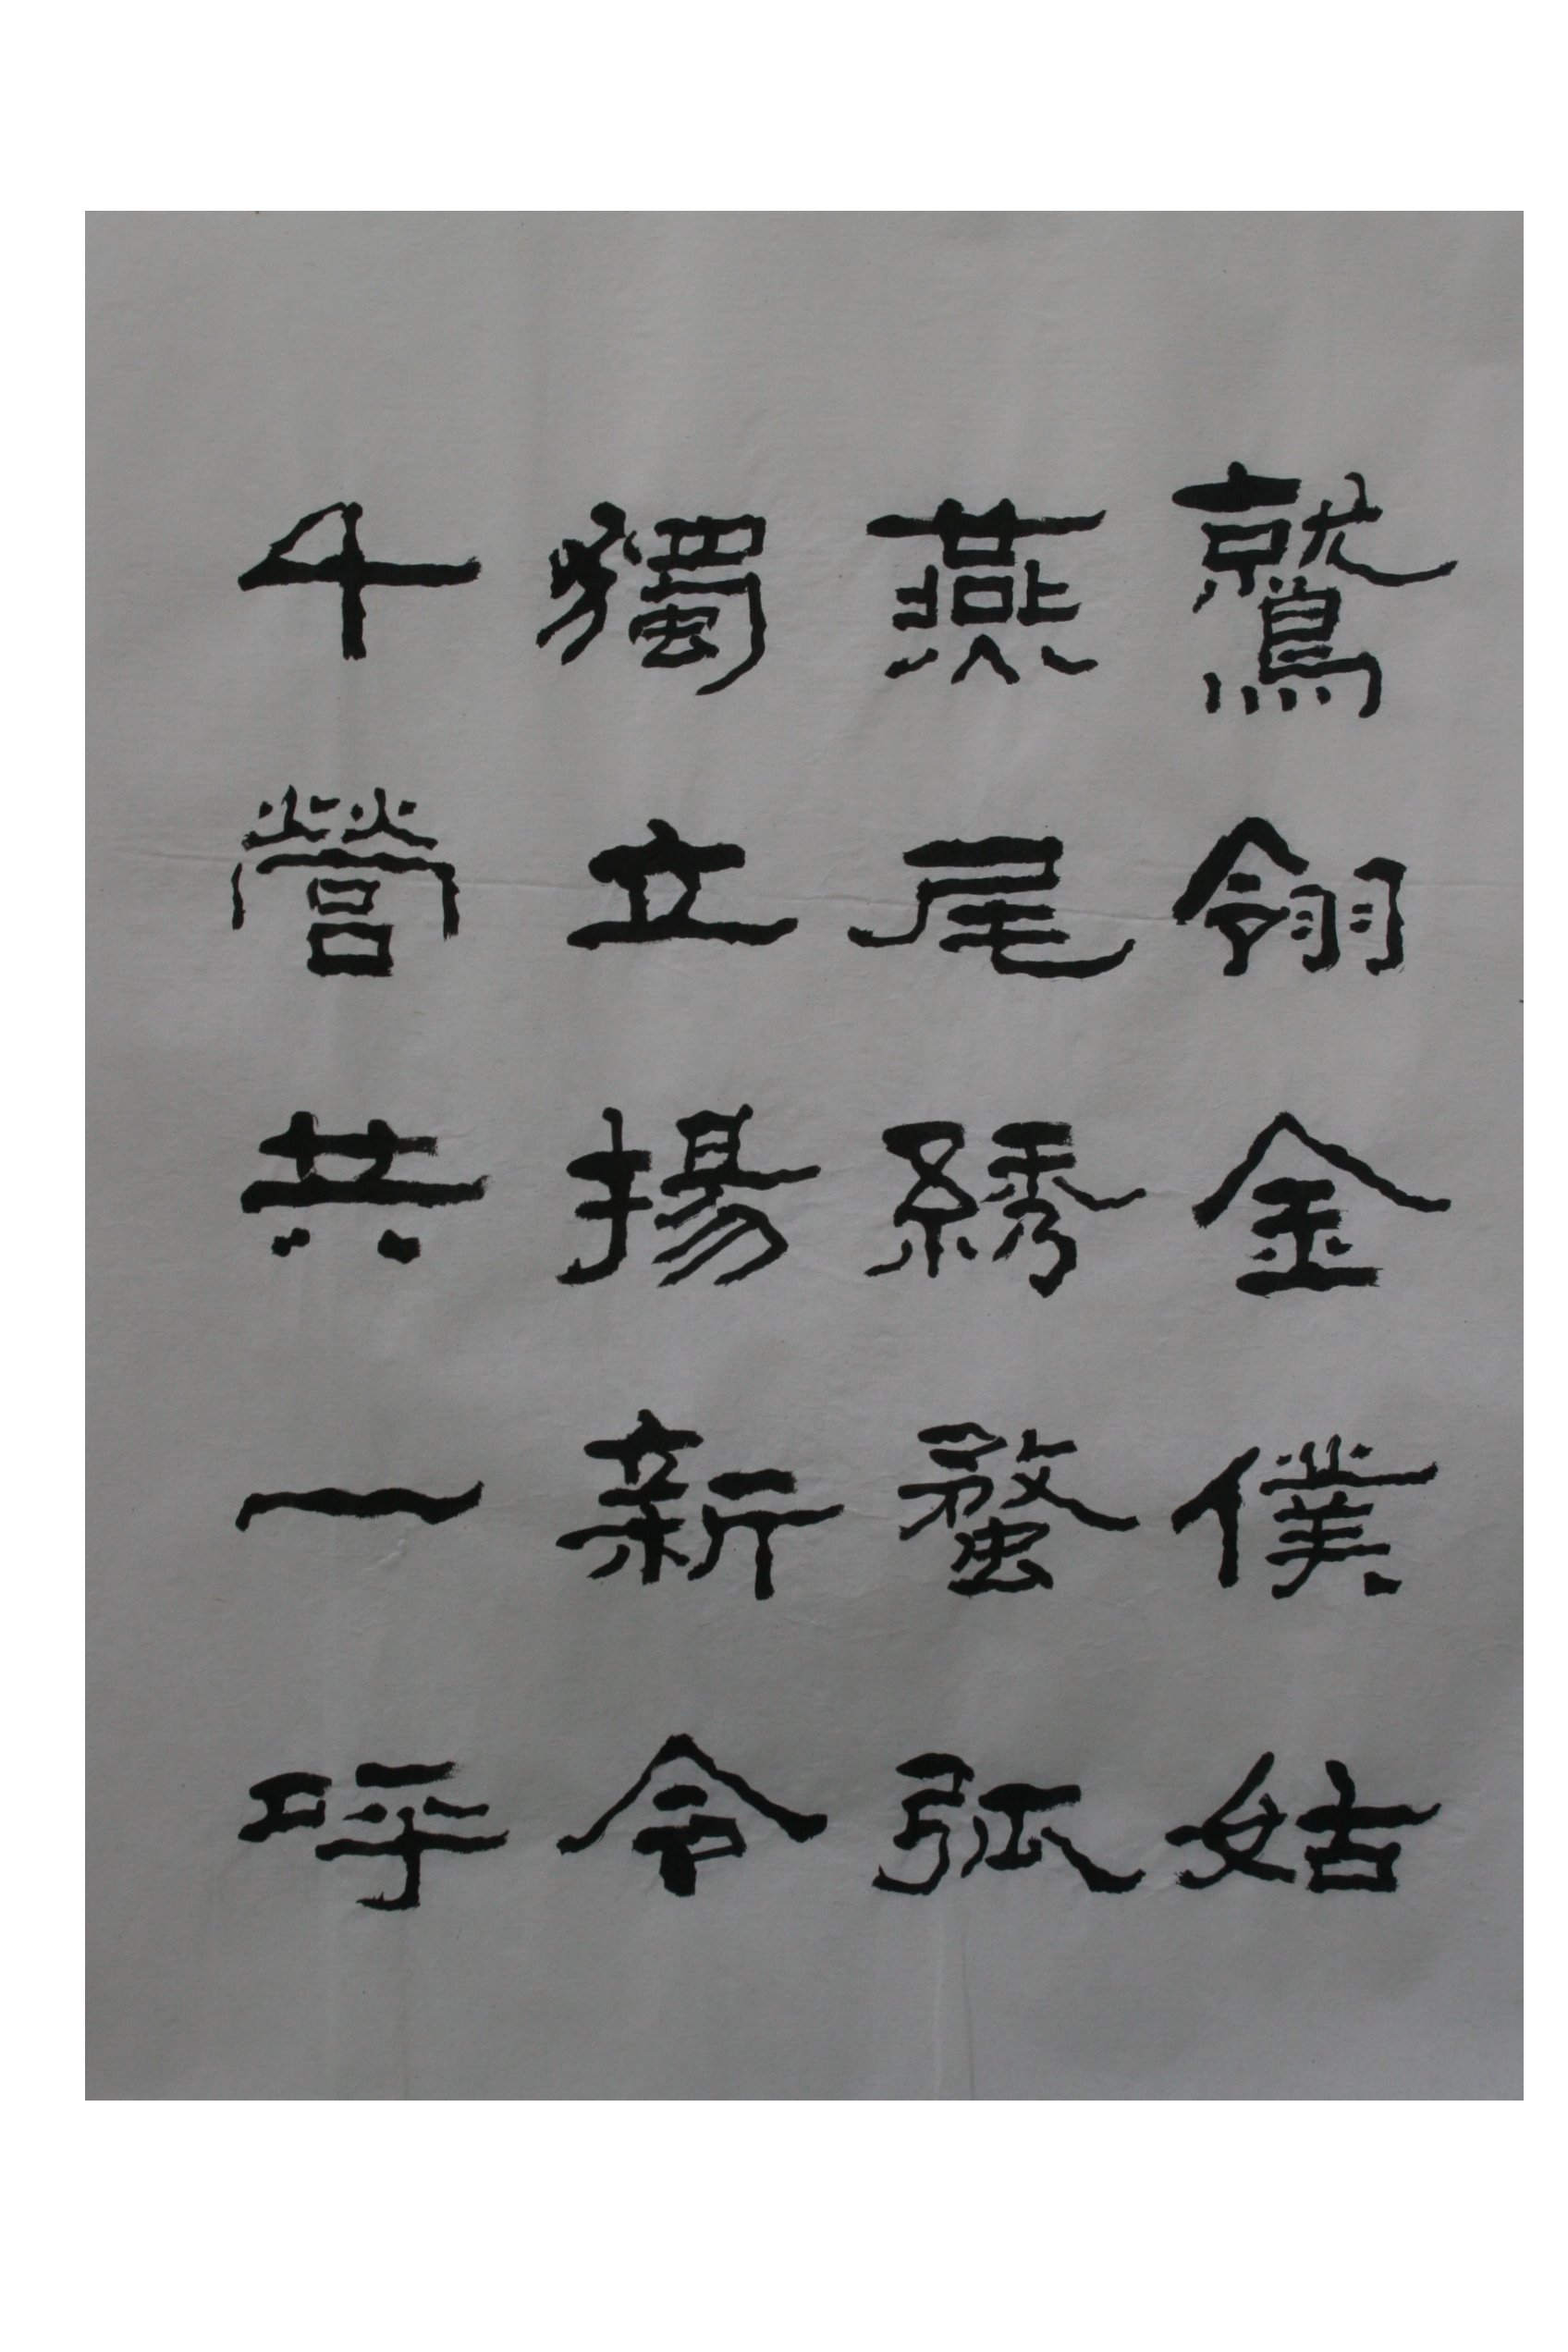 鷲翎金僕姑
燕尾綉蝥弧
獨立揚新令
千營共一呼